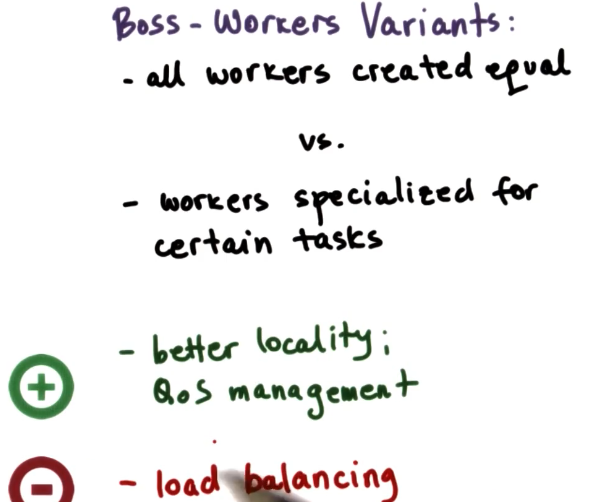 Boss-Workers Variants:
- all workers created equal
vs.
- workers specialized for
certain tasks
- better locality;
QoS management
- load balancing